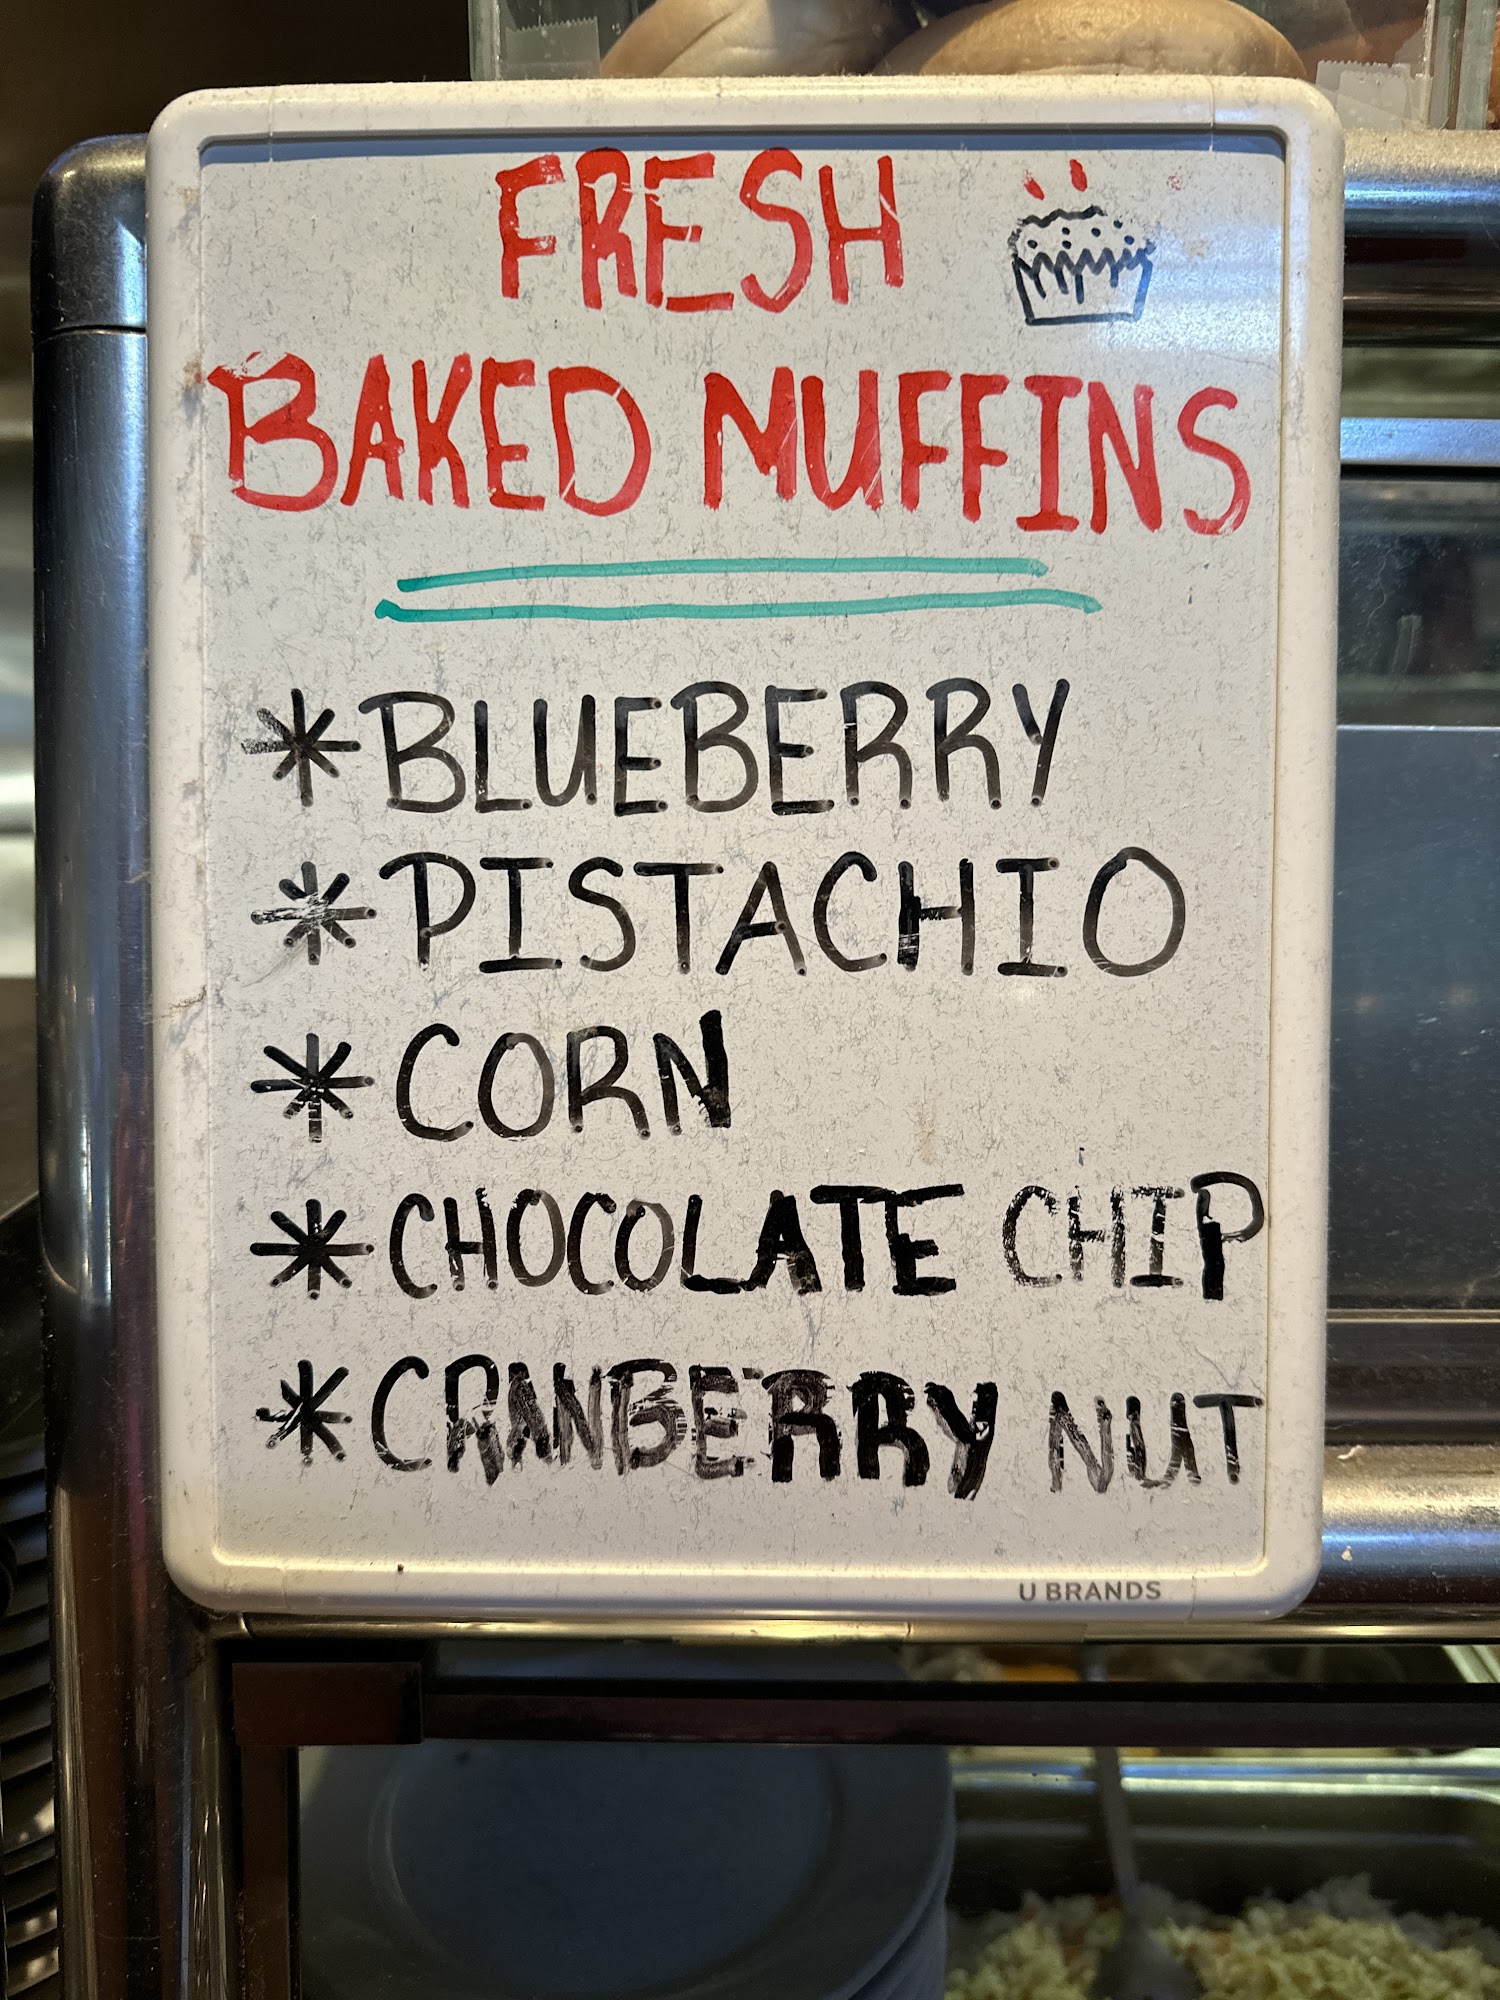 FRESH
BAKED MUFFINS
* BLUEBERRY
* PISTACHIO
* CORN
* CHOCOLATE CHIP
* CRANBERRY NUT
U BRANDS